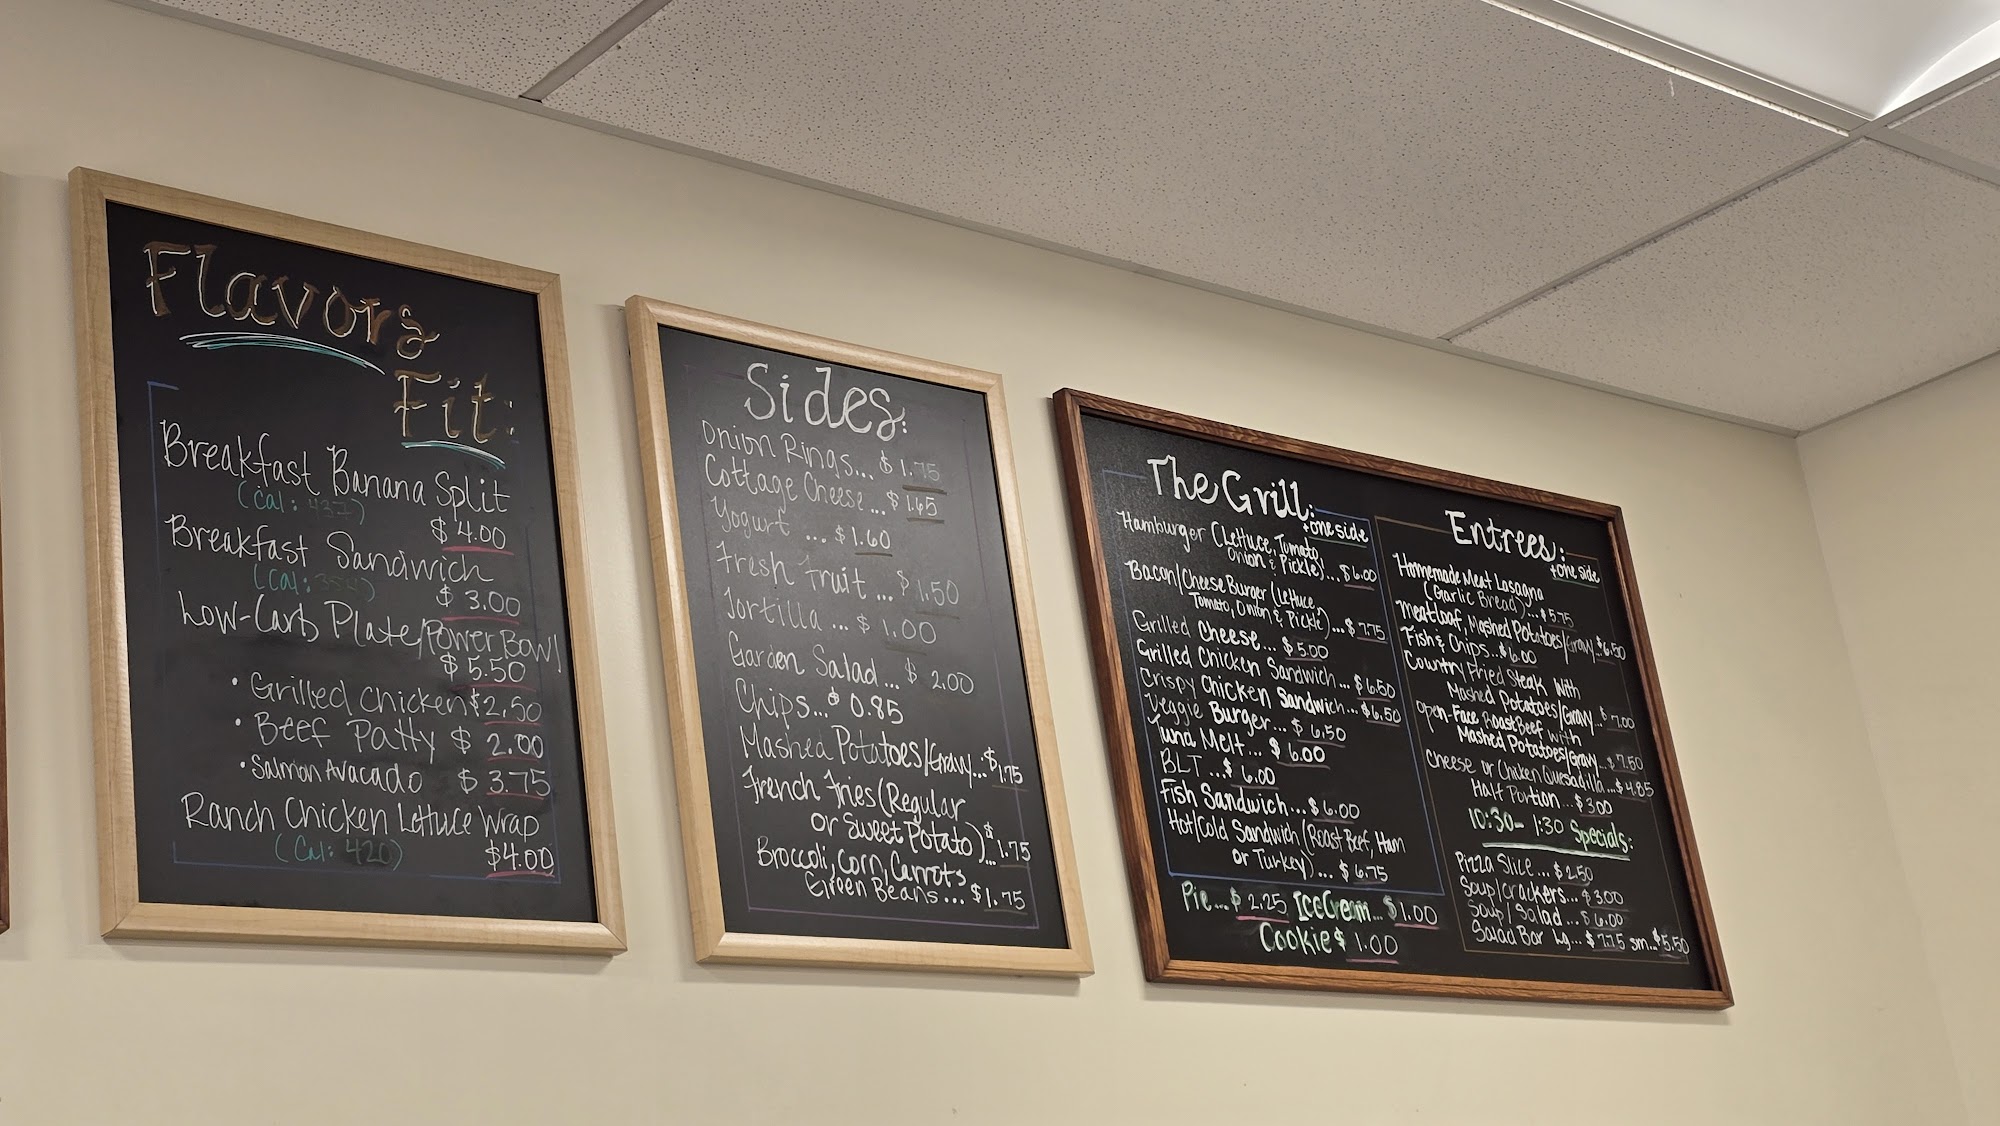 Flavors
Fit:
Breakfast Banana Split
(Cal: 437)
$4.00
Breakfast Sandwich
(Cal:
$3.00
Low-Carb Plate/Power Bowl
$5.50
• Grilled Chicken $2.50
• Beef Patty $2.00
• Salmon Avacado $3.75
Ranch Chicken Lettuce Wrap
(Cal: 420)
$4.00
Sides:
Onion Rings... $1.75
Cottage Cheese... $1.65
Yogurt ... $1.60
Fresh Fruit ... $1.50
Tortilla ... $1.00
Garden Salad... $2.00
Chips... $0.85
Mashed Potatoes/Gravy... $1.75
French Fries (Regular
or Sweet Potato)... $1.75
Broccoli, Corn, Carrots
Green Beans ... $1.75
The Grill:
+one side
Hamburger (Lettuce, Tomato,
Onion & Pickle)... $6.00
Bacon/Cheese Burger (Lettuce,
Tomato, Onion & Pickle)... $7.75
Grilled Cheese... $5.00
Grilled Chicken Sandwich... $6.50
Crispy Chicken Sandwich... $6.50
Veggie Burger... $6.50
Tuna Melt... $6.00
BLT ... $6.00
Fish Sandwich... $6.00
Hot/Cold Sandwich (Roast Beef, Ham
or Turkey)... $6.75
Pie... $2.25 Ice Cream... $1.00
Cookie $1.00
Entrees:
+one side
Homemade Meat Lasagna
(Garlic Bread)... $5.75
Meatloaf, Mashed Potatoes/Gravy... $6.50
Fish & Chips... $6.00
Country Fried Steak With
Mashed Potatoes/Gravy... $7.00
Open-Face Roast Beef with
Mashed Potatoes/Gravy... $7.50
Cheese or Chicken Quesadilla... $4.85
Half Portion... $3.00
10:30- 1:30 Specials:
Pizza Slice... $2.50
Soup/Crackers... $3.00
Soup/Salad... $6.00
Salad Bar Lg... $7.75 sm... $5.50